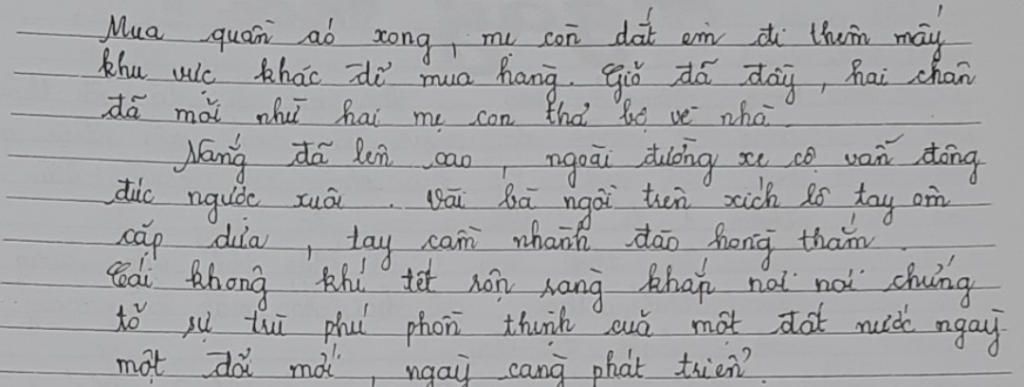 Mua quần áo xong, mẹ còn dắt em đi thêm mấy
khu vực khác để mua hàng. Giỏ đã đầy, hai chân
đã mỏi nhừ hai mẹ con thả bộ về nhà.
Nắng đã lên cao, ngoài đường xe cộ vẫn đông
đúc ngược xuôi. Vài bà ngồi trên xích lô tay ôm
cặp dừa, tay cầm nhành đào hồng thắm.
Cái không khí tết rộn ràng khắp nơi nơi chứng
tỏ sự trù phú phồn thịnh của một đất nước ngày
một đổi mới, ngày càng phát triển.